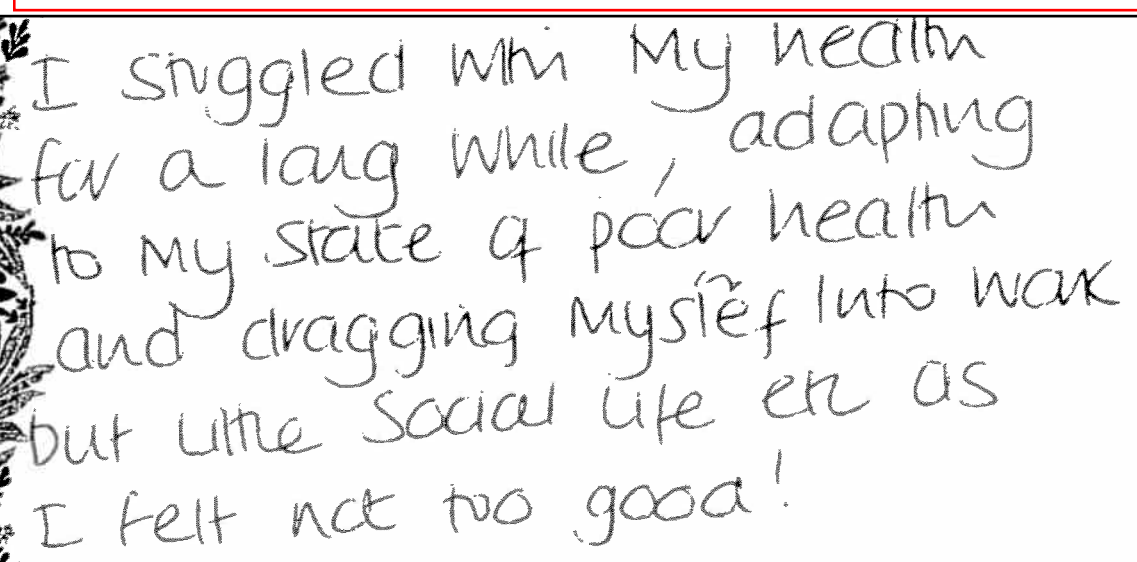 I struggled with My health
for a long while, adapting
to My state of poor health
and dragging myslef Into work
but little Social life etc as
I felt not too good!